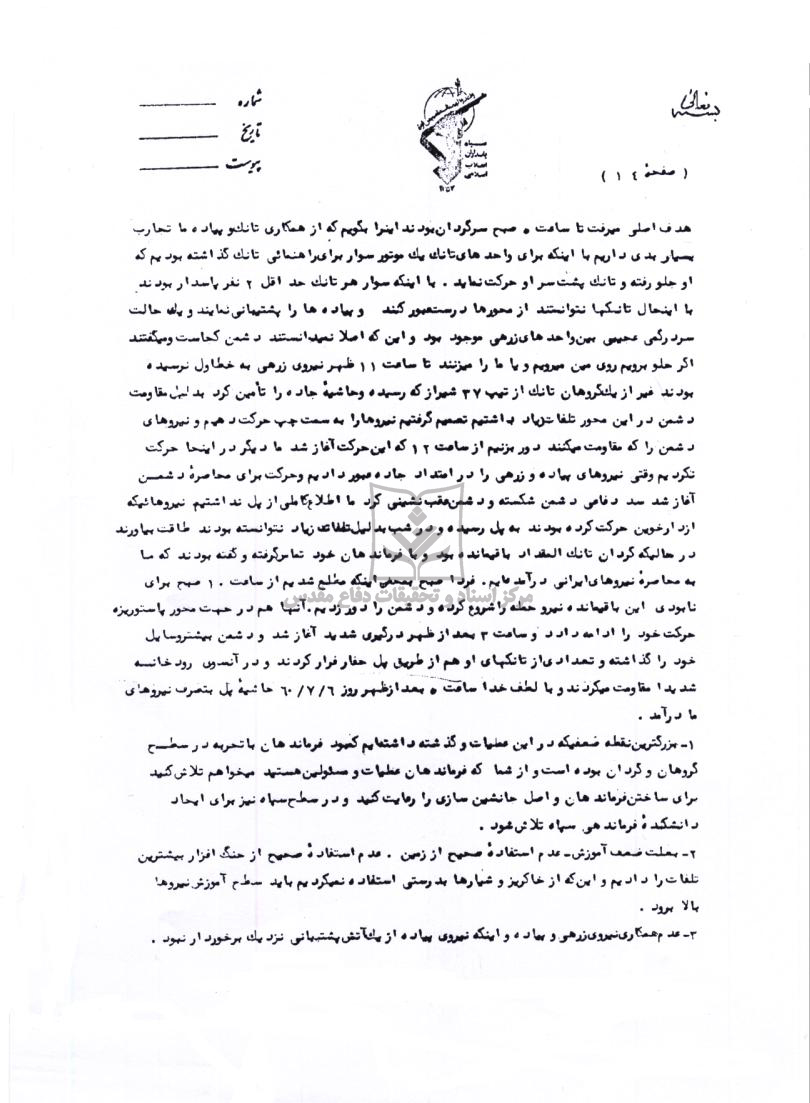 بسمه تعالی
شماره
تاریخ
پیوست
سپاه
پاسداران
انقلاب
اسلامی
( صفحهٔ ۱۴ )
هدف اصلی میرفت تا ساعت ۵ صبح سرگردان بودند اینرا بگویم که از همکاری تانک و پیاده ما تجارب
بسیار بدی داریم با اینکه برای واحد های تانک یک موتور سوار برای راهنمائی تانک گذاشته بودیم که
او جلو رفته و تانک پشت سر او حرکت نماید . با اینکه سوار هر تانک حد اقل ۲ نفر پاسدار بودند
با اینحال تانکها نتوانستند از محورها درست عبور کنند و پیاده ها را پشتیبانی نمایند و یک حالت
سردرگمی عجیبی بین واحد های زرهی موجود بود و این که اصلا نمیدانستند دشمن کجاست ومیگفتند
اگر جلو برویم روی مین میرویم و یا ما را میزنند تا ساعت ۱۱ ظهر نیروی زرهی به خط اول نرسیده
بودند غیر از یک گروهان تانک از تیپ ۳۷ شیراز که رسیده وحاشیهٔ جاده را تأمین کرد بدلیل مقاومت
دشمن در این محور تلفات زیاد داشتیم تصمیم گرفتیم نیروها را به سمت چپ حرکت دهیم و نیروهای
دشمن را که مقاومت میکنند دور بزنیم از ساعت ۱۲ که این حرکت آغاز شد ما دیگر در اینجا حرکت
نکردیم وقتی نیروهای پیاده و زرهی را در امتداد جاده عبور دادیم وحرکت برای محاصرهٔ دشمن
آغاز شد سد دفاعی دشمن شکسته و دشمن عقب نشینی کرد ما اطلاع کاملی از پل نداشتیم نیروهائیکه
از دارخوین حرکت کرده بودند به پل رسیده و در شب بدلیل تلفات زیاد نتوانسته بودند طاقت بیاورند
در حالیکه گردان تانک المقداد باقیمانده بود و با فرماندهان خود تماس گرفته و گفته بودند که ما
به محاصرهٔ نیروهای ایرانی درآمده‌ایم. فردا صبح بمحض اینکه مطلع شدیم از ساعت ۱۰ صبح برای
نابودی این باقیمانده نیرو حمله را شروع کرده و دشمن را دور زدیم. آنها هم در جهت محور پاستوریزه
حرکت خود را ادامه داد و ساعت ۳ بعد از ظهر درگیری شدید آغاز شد و دشمن بیشتر وسایل
خود را گذاشته و تعدادی از تانکهای او هم از طریق پل حفار فرار کردند و در آنسوی رودخانه
شدیدا مقاومت میکردند و با لطف خدا ساعت ۵ بعد از ظهر روز ۶۰/۷/۶ حاشیهٔ پل بتصرف نیروهای
ما درآمد .
۱- بزرگترین نقطه ضعفیکه در این عملیات و گذشته داشته‌ایم کمبود فرماندهان با تجربه در سطح
گروهان و گردان بوده است و از شما که فرماندهان عملیات و مسئولین هستید میخواهم تلاش کنید
برای ساختن فرماندهان و اصل جانشین سازی را رعایت کنید و در سطح سپاه نیز برای ایجاد
دانشکدهٔ فرماندهی سپاه تلاش شود .
۲- بعلت ضعف آموزش - عدم استفادهٔ صحیح از زمین . عدم استفادهٔ صحیح از جنگ افزار بیشترین
تلفات را دادیم و این که از خاکریز و شیارها بدرستی استفاده نمیکردیم باید سطح آموزش نیروها
بالا برود .
۳- عدم همکاری نیروی زرهی و پیاده و اینکه نیروی پیاده از یک آتش پشتیبانی نزدیک برخوردار نبود .
مرکز اسناد و تحقیقات دفاع مقدس